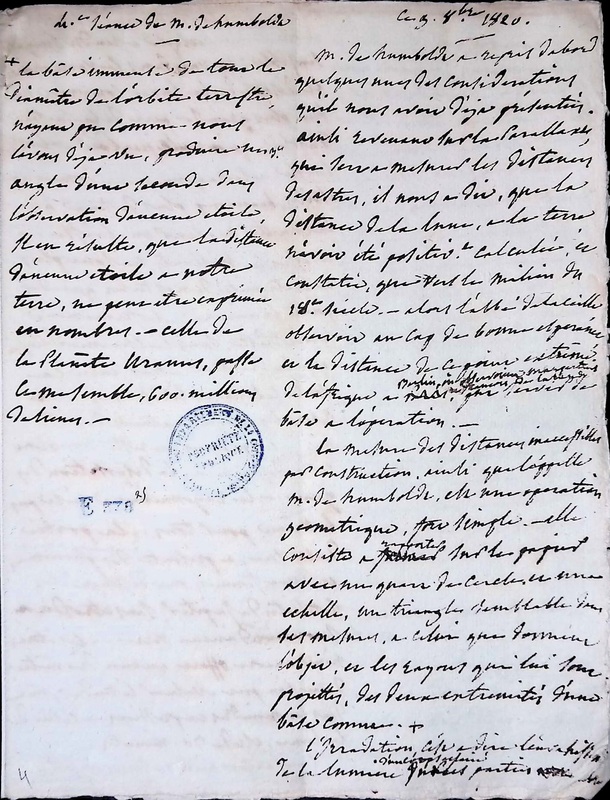 de séance de M. de humbolde
Ce 9. 8bre 1820.
+
la base immense de tout le
diamètre de l'orbite terrestre,
n'ayant pu comme nous
l'avons déja vu, produire un
angle d'une seconde dans
l'observation d'aucune etoile,
il en résulte, que la distance
d'aucune etoile a notre
terre, ne peut etre exprimée
en nombres. – celle de
la Planète Uranus, passe
ce me semble, 600. millions
de lieues. –
PROPRIÉTÉ
PUBLIQUE
E
4
M. de humbolde a repris d'abord
quelques unes des considerations
qu'il nous avoit déja présentées.
ainsi revenant sur la Parallaxe,
qui sert a mesurer les distances
des astres, il nous a dit, que la
distance de la lune, a la terre
n'avoit été positivt calculée, et
constatée, que vers le milieu du
18e siècle. – alors l'abbé de la caille
observoit au Cap de bonne esperance
et la distance de ce point extrême
de l'afrique a servir de
base a l'operation. –
la mesure des distances inaccessibles
par construction, ainsi que l'appelle
M. de humbolde, est une operation
geometrique, fort simple. – elle
consiste a rapporter sur le papier
avec un quart de cercle, et une
echelle, un triangle semblable dans
ses mesures, a celui que donnent
l'objet, et les rayons qui lui sont
projettés, des deux extremités d'une
base connue. +
l'Irradation, c'est a dire
de la lumiere parties